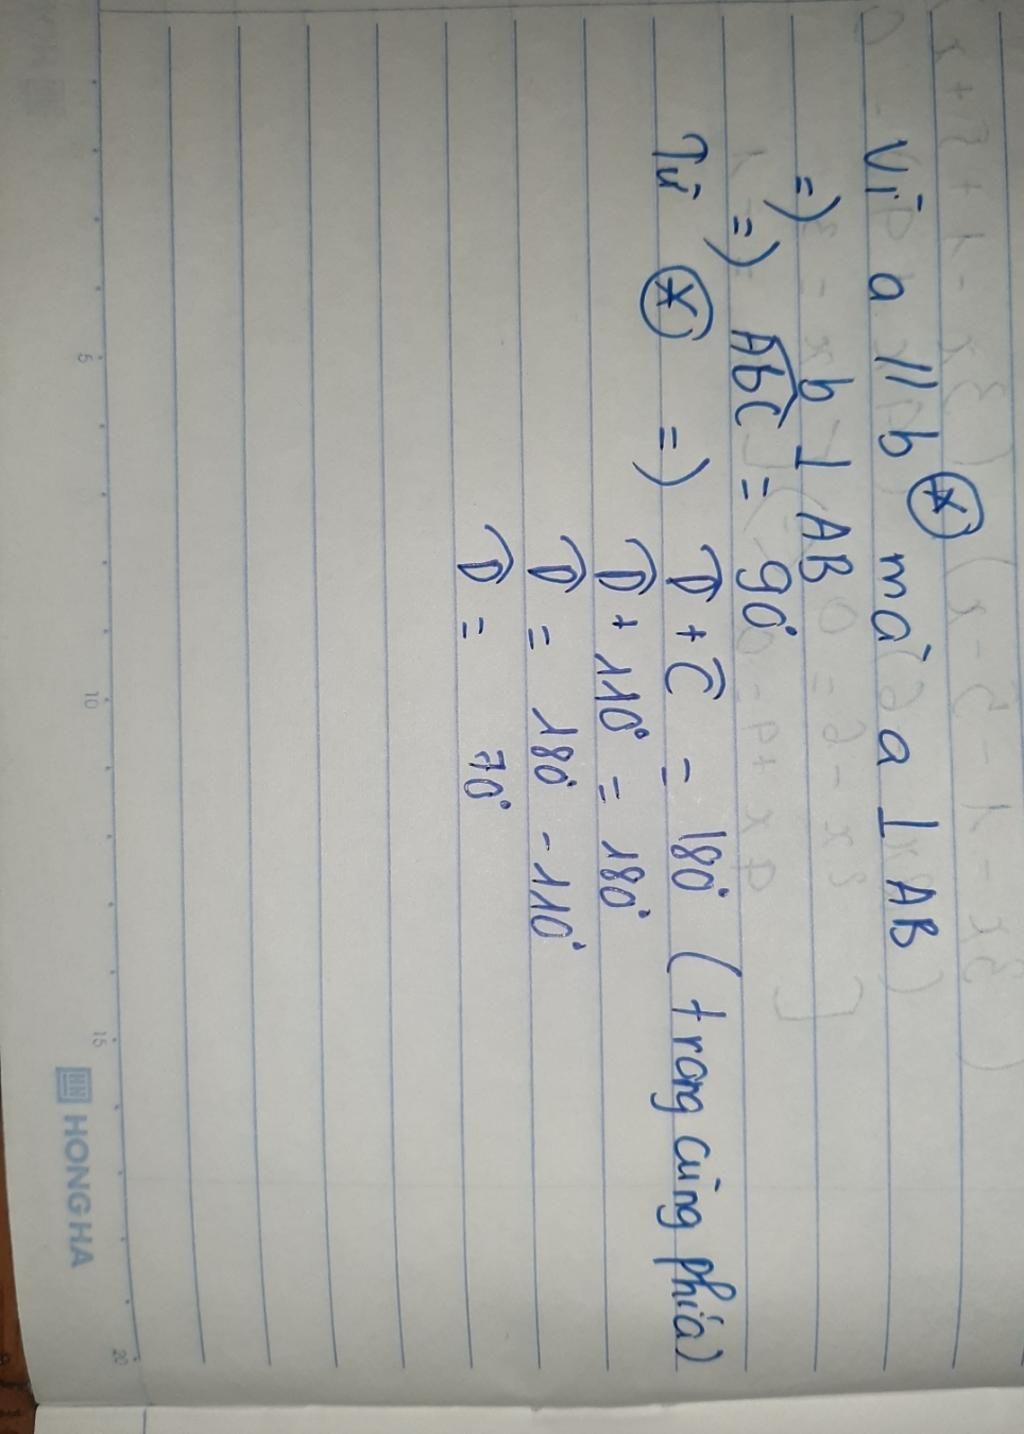 Vì a // b (*) mà a ⊥ AB
=) b ⊥ AB
=) ABC = 90°
Từ (*) =) D̂ + Ĉ = 180° (trong cùng phía)
D̂ + 110° = 180°
D̂ = 180° - 110°
D̂ = 70°
5 10 15 20
HONG HA